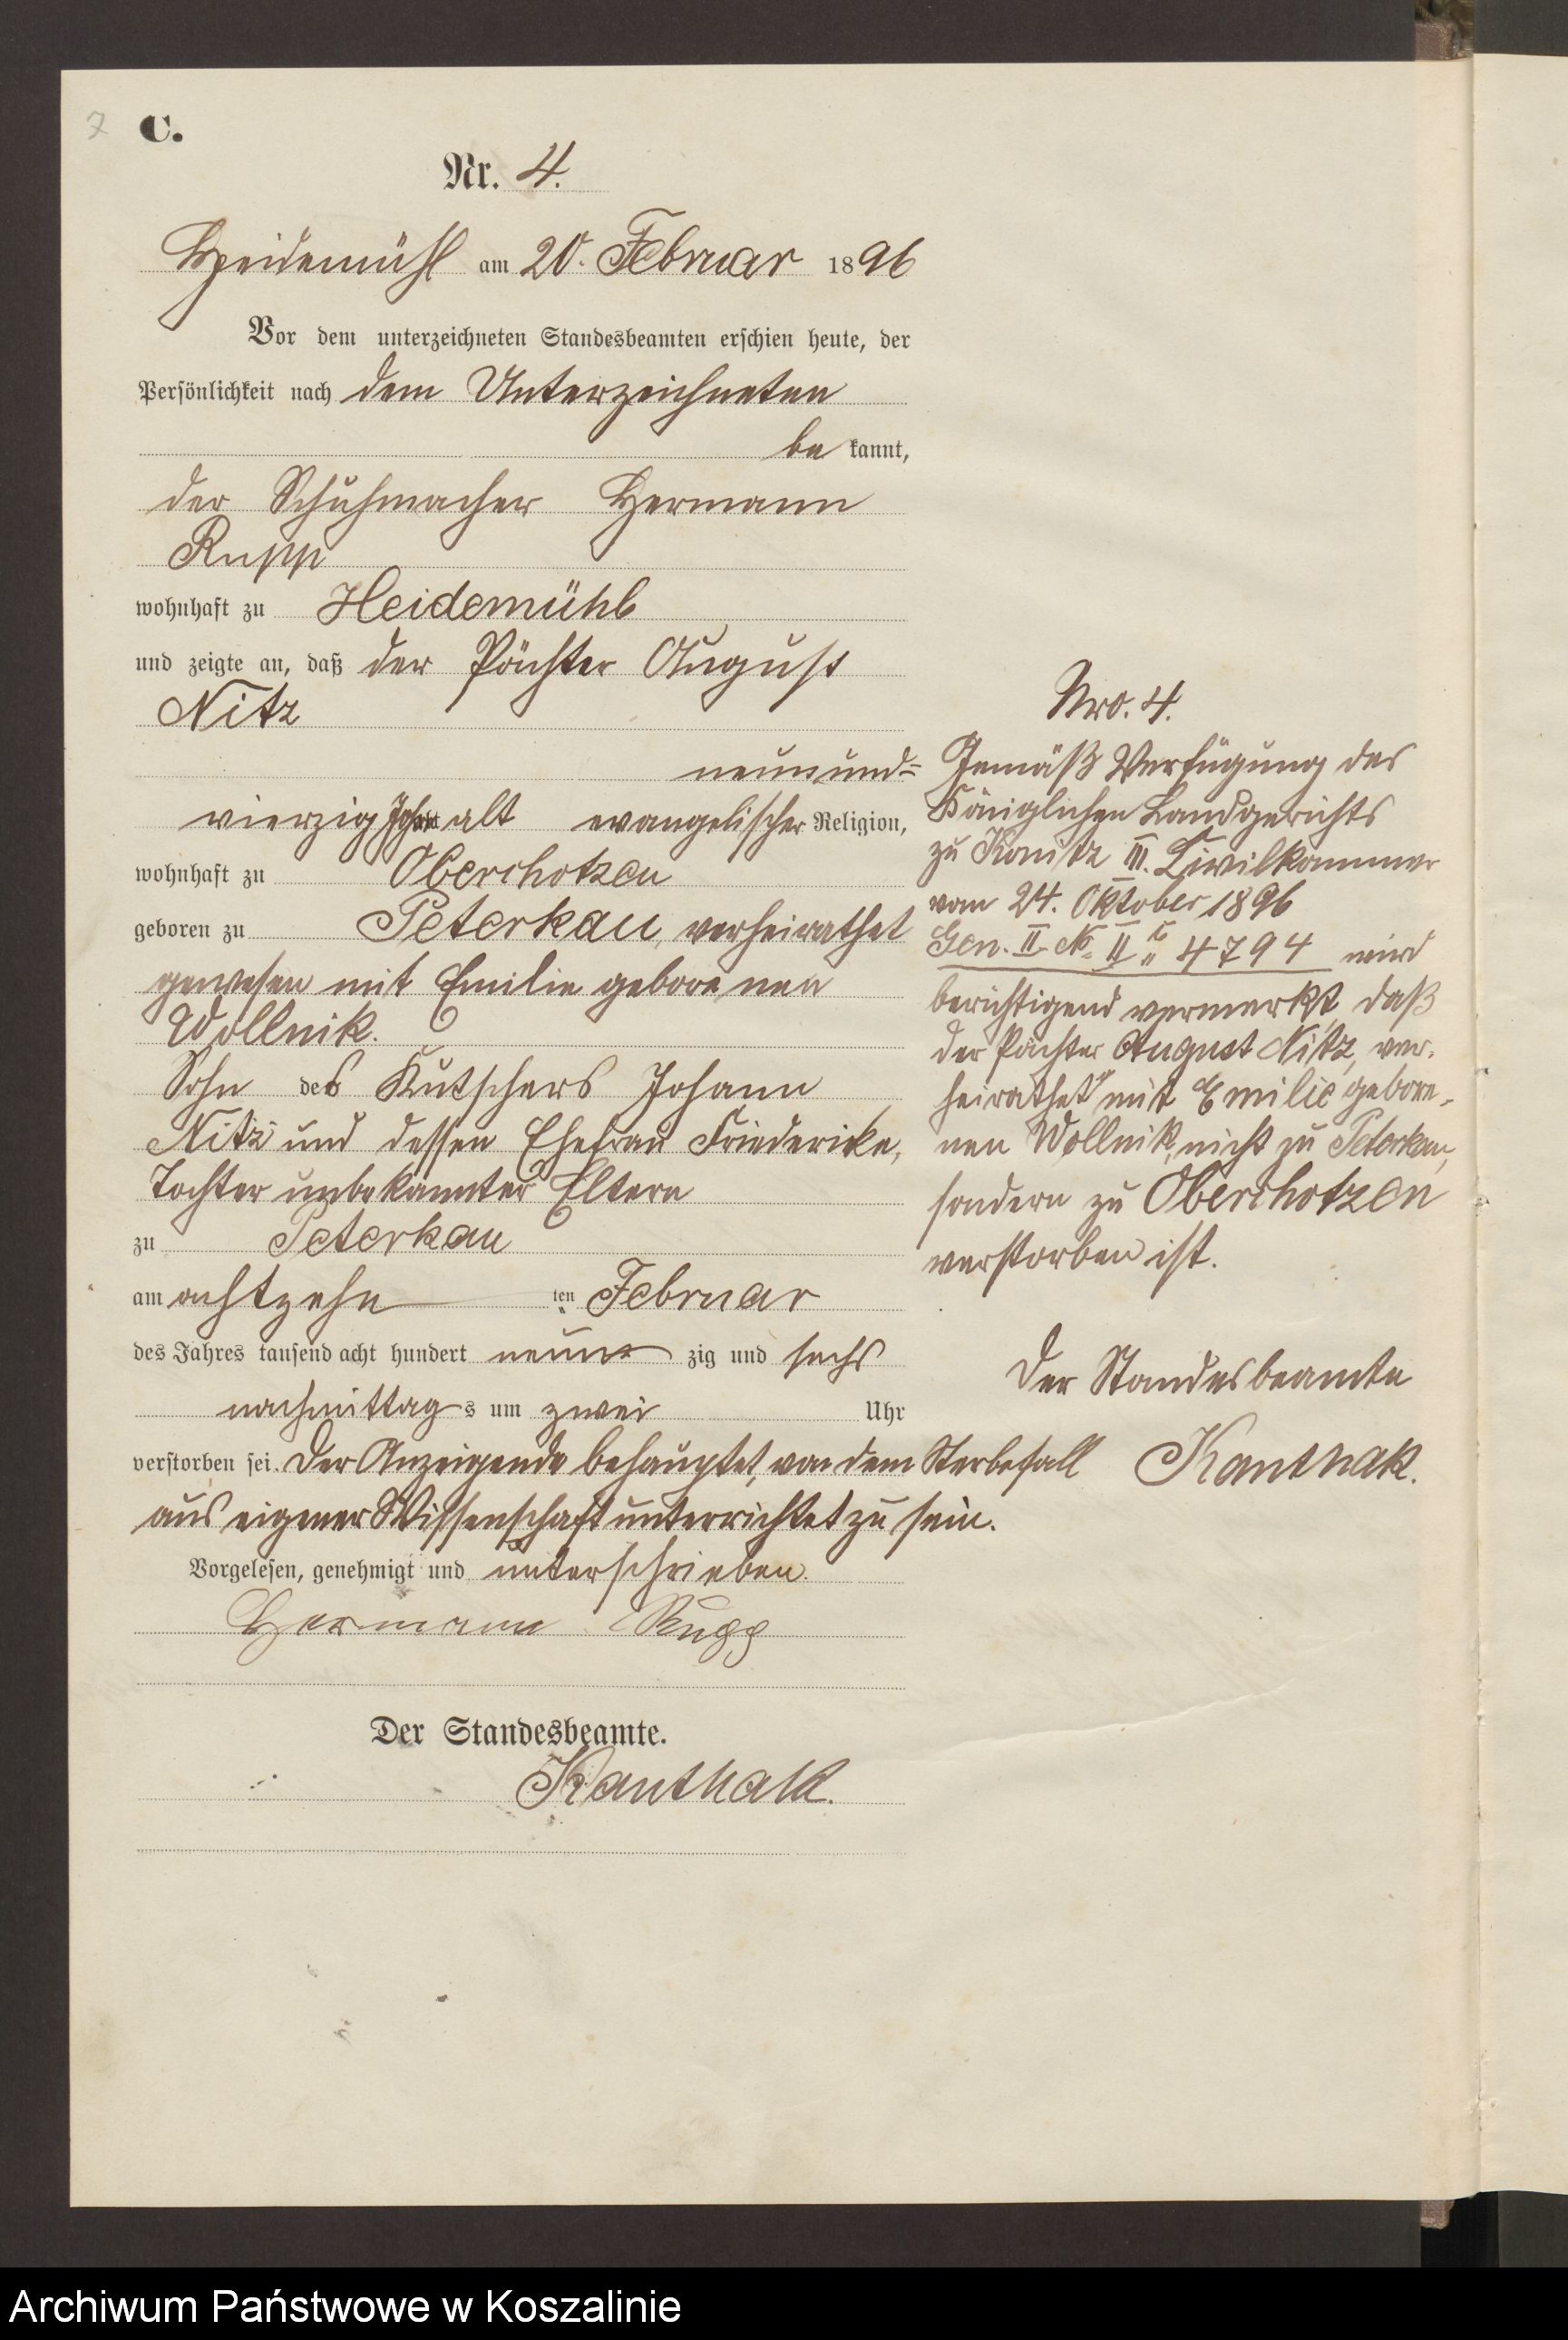 7 C.
Nr. 4.
Heidemühl am 20. Februar 1896
Vor dem unterzeichneten Standesbeamten erschien heute, der
Persönlichkeit nach dem Unterzeichneten
be kannt,
der Schuhmacher Hermann
Rupp
wohnhaft zu Heidemühl
und zeigte an, daß der Pächter August
Nitz
neunund=
vierzig Jahre alt evangelischer Religion,
wohnhaft zu Oberchotzen
geboren zu Peterkau, verheirathet
gewesen mit Emilie geborenen
Wollnik.
Sohn des Kutschers Johann
Nitz und dessen Ehefrau Friedericke,
Tochter unbekannter Eltern
zu Peterkau
am achtzehn ten Februar
des Jahres tausend acht hundert neun zig und sechs
nachmittags um zwei Uhr
verstorben sei. Der Anzeigende behauptet, von dem Sterbefall
aus eigener Wissenschaft unterrichtet zu sein.
Vorgelesen, genehmigt und unterschrieben.
Hermann Rupp
Der Standesbeamte.
Kanthak.
Nro. 4.
Gemäß Verfügung des
Königlichen Landgerichts
zu Konitz III. Civilkammer
vom 24. Oktober 1896
Gen. II No. II 4794 wird
berichtigend vermerkt, daß
der Pächter August Nitz, ver-
heirathet mit Emilie gebore-
nen Wollnik, nicht zu Peterkau,
sondern zu Oberchotzen
verstorben ist.
Der Standesbeamte
Kanthak.
Archiwum Państwowe w Koszalinie